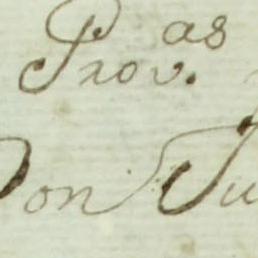 Prov.as
Don Ju